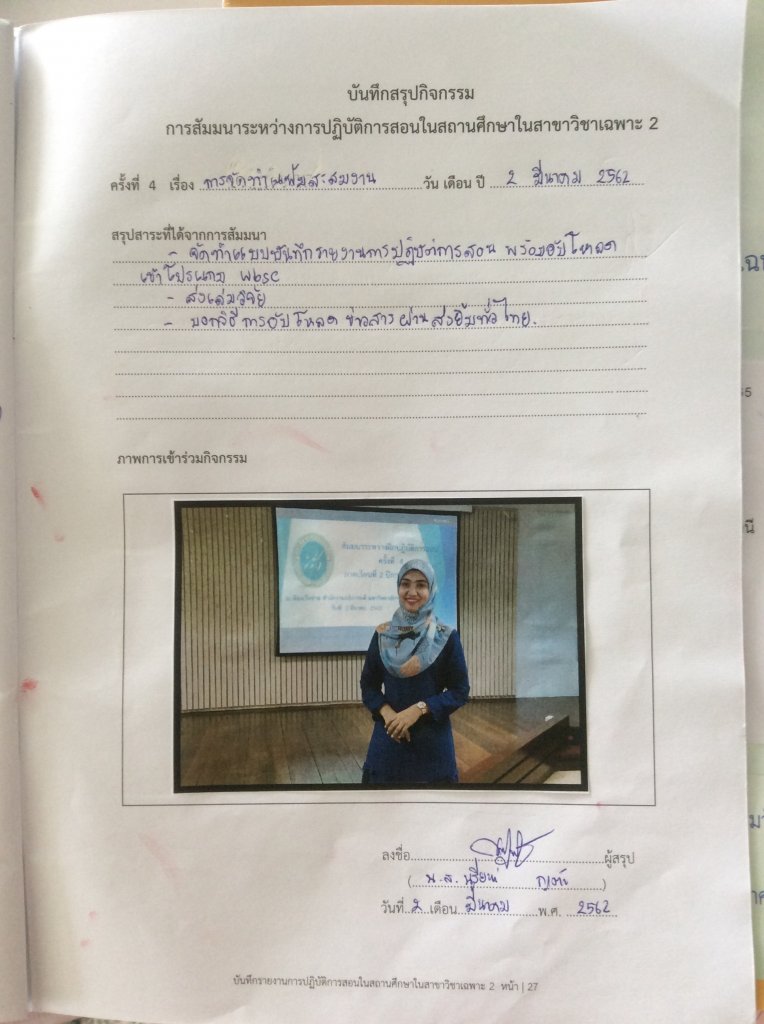 บันทึกสรุปกิจกรรม
การสัมมนาระหว่างการปฏิบัติการสอนในสถานศึกษาในสาขาวิชาเฉพาะ 2
ครั้งที่ 4 เรื่อง การจัดทำแฟ้มสะสมงาน วัน เดือน ปี 2 มีนาคม 2562
สรุปสาระที่ได้จากการสัมมนา
- จัดทำแบบบันทึกรายงานการปฏิบัติการสอน พร้อมอัปโหลด
เข้าโปรแกรม wbsc
- ส่งเล่มวิจัย
- บอกวิธีการอัปโหลด ข่าวสาร ผ่านส่งยิ้มทั่วไทย.
ภาพการเข้าร่วมกิจกรรม
สัมมนาระหว่างฝึกปฏิบัติการสอน
ครั้งที่ 4
ลงชื่อ ผู้สรุป
( น.ส. )
วันที่ 2 เดือน มีนาคม พ.ศ. 2562
บันทึกรายงานการปฏิบัติการสอนในสถานศึกษาในสาขาวิชาเฉพาะ 2 หน้า | 27